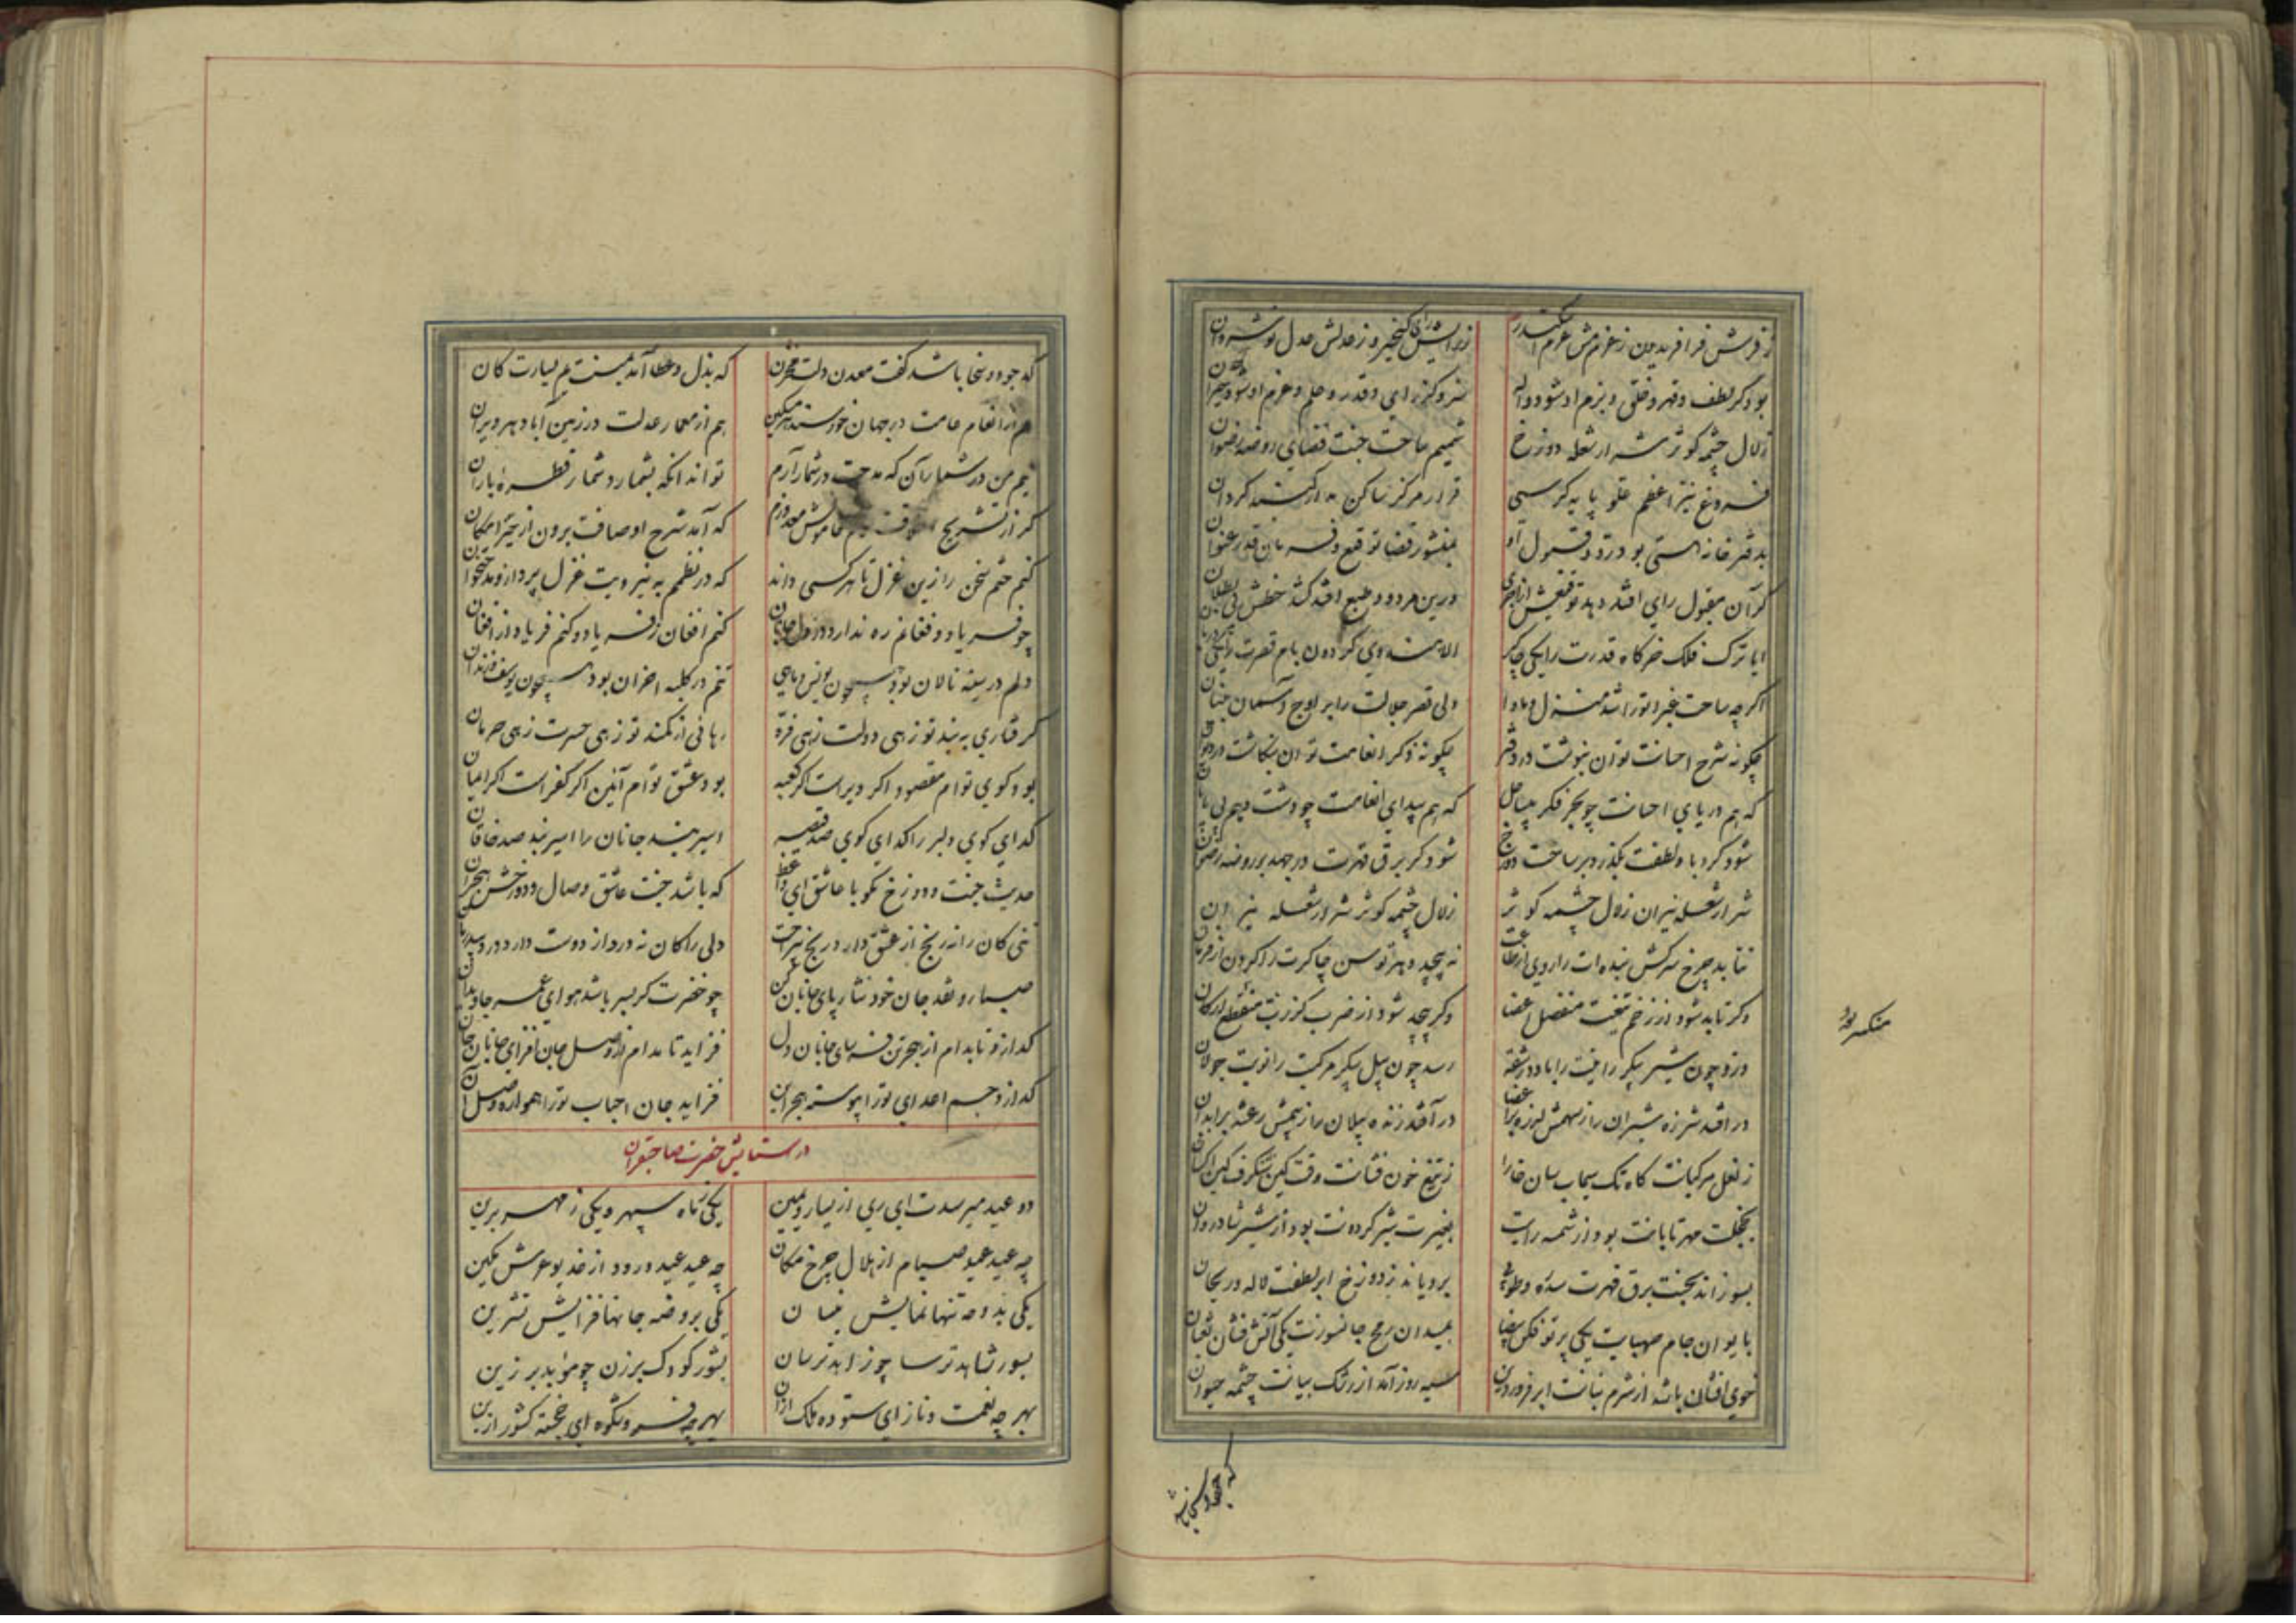 ز فرش فر افریدون ز عزمش عزم اسکندر ز رایش رای کیخسرو ز عدلش عدل نوشروان
بود گر لطف و قهر و خلق و بزم او شود واله
زلال چشمه کوثر شرار شعله دوزخ شمیم ساحت جنت فضای روضه رضوان
فروغ نیر اعظم علو پایه کرسی قرار مرکز ساکن مدار گنبد گردان
بدفتر خانه هستی بود در رد و قبول او بمنشور قضا توقیع و فرمان قدر عنوان
گر آن مقبول رای افتد دهد توقیعش از اجری ورین مردود طبع افتد کشد خطش بی بطلان
ایا ترک فلک خرگاه قدرت را یکی چاکر الا هندوی گردون بام قصرت را یکی دربان
اگر چه ساحت غبرا تو را شد منزل و ماوا ولی قصر جلالت را بر اوج آسمان بنیان
چگونه شرح احسانت توان بنوشت در دفتر چگونه ذکر انعامت توان بنگاشت در دیوان
که هم دریای احسانت چو بحر فکر بیساحل که هم بیدای انعامت چو دشت وهم بی پایان
شود گر باد لطفت بگذرد بر ساحت دوزخ شود گر برق قهرت در جهد بر روضه رضوان
شرار شعله نیران زلال چشمه کوثر زلال چشمه کوثر شرار شعله نیران
نتابد چرخ سرکش بنده ات را روی از طاعت نه پیچد دهر توسن چاکرت را گردن از فرمان
وگر تابد شود از زخم تیغت منفصل اعضا وگر پیچد شود از ضرب گرزت منقطع ارکان
درد چون شیر پیکر رایتت را باد در شقه رسد چون پیل پیکر مرکبت را نوبت جولان
در افتد شرزه شیران را ز سهمش لرزه بر اعضا در آفتد زنده پیلان را ز بیمش رعشه بر ابدان
ز نعل مرکبانت کاه تک سیماب سان خارا ز تیغ خون فشانت وقت کین شنگرف گین
بخجلت مهر تابانت بود از شمسه رایت بغیرت شیر گردونت بود از شیر شادروان
بسوزاند بجنت برق قهرت سدره و طوبی برویاند بدوزخ ابر لطفت لاله و ریحان
بایوان جام صهبایت یکی پرتو فکن بیضا بمیدان رمح جانسوزت یکی آتش فشان ثعبان
خوی افشان باشد از شرم بنانت ابر فروردین سیه روز آمد از رشک بیانت چشمه حیوان
که جود و سخا باشد کفت معدن دلت مخزن که بذل و عطا آمد یمینت یم یسارت کان
هم از انعام عامت در جهان خورسند هر مسکین هم از معمار عدلت در زمین آباد هر ویران
نیم من در شمار آن که مدحت در شمار آرم تواند انکه بشمارد شمار قطره باران
گر از تشریح اوصافت خاموش معذورم که آمد شرح اوصافت برون از حیز امکان
کنم ختم سخن را زین غزل تا هر کسی داند که در نظمم به نیرویت غزل پرداز و مدحتخوان
چو فریاد و فغانم ره ندارد در دل جانان کنم افغان ز فریاد و کنم فریاد از افغان
دلم در سینه نالان بود همچون یونس و ماهی تنم در کلبه احزان بود همچون یوسف و زندان
گرفتاری به بند تو زهی دولت زهی فره رهائی از کمند تو زهی حسرت زهی حرمان
بود کوی توام مقصود اگر دیر است اگر کعبه بود عشق توام آئین اگر کفر است اگر ایمان
گدای کوی دلبر را گدای کوی صد قیصر اسیر بند جانان را اسیر بند صد خاقان
حدیث جنت و دوزخ مگو با عاشق ای واعظ که باشد جنت عاشق وصال و دوزخش هجران
تنی کان را نه رنج از عشق دارد رنج بیراحت دلی را کان نه درد از دوست دارد درد بیدرمان
صبا رو نقد جان خود نثار پای جانان کن چو خضرت گر بسر باشد هوای عمر جاویدان
گدازد تا بدام از هجر تن فرسای جانان دل فزاید تا مدام از وصل جان افزای جانان جان
گدازد جسم اعدای تو را پیوسته هجر این فزاید جان احباب تو را همواره وصل آن
در ستایش حضرت صاحبقران
دو عید میرسدت ای ری از یسار و یمین یکی ز ماه سپهر و یکی ز مهر برین
چه عید عید صیام از هلال چرخ مکان چه عید عید ورود از خدیو عرش مکین
یکی بدوحه تنها نمایش نیسان یکی بروضه جانها فزایش تشرین
بسور شاهد ترسا چو زاهد ترسان بشور کودک برزن چو موبد برزین
بهر چه نعمت و ناز ای ستوده ملک از آن بهر چه فر و شکوه ای خجسته کشور از این